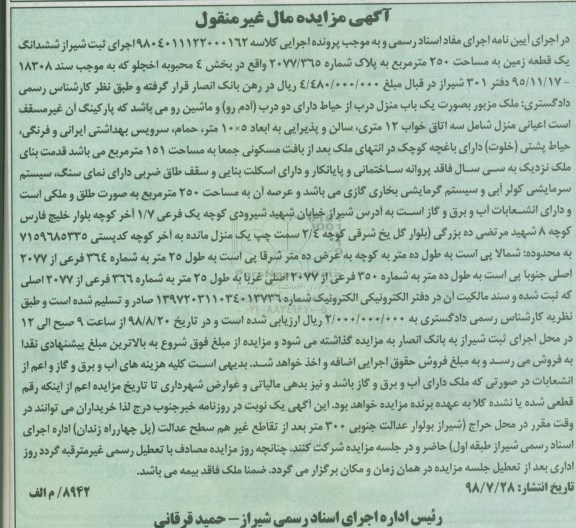 آگهی مزایده مال غیر منقول
در اجرای آیین نامه اجرای مفاد اسناد رسمی و به موجب پرونده اجرایی کلاسه ۹۸۰۴۰۱۱۱۲۲۰۰۰۱۶۲ اجرای ثبت شیراز ششدانگ
یک قطعه زمین به مساحت ۲۵۰ مترمربع به پلاک شماره ۲۰۷۷/۳۶۵ واقع در بخش ۴ محبوبه اخچلو که به موجب سند ۱۸۳۰۸
– ۹۵/۱۱/۱۷ دفتر ۳۰۱ شیراز در قبال مبلغ ۴/۴۸۰/۰۰۰/۰۰۰ ریال در رهن بانک انصار قرار گرفته و طبق نظر کارشناس رسمی
دادگستری: ملک مزبور بصورت یک باب منزل درب از حیاط دارای دو درب (آدم رو) و ماشین رو می باشد که پارکینگ آن غیرمسقف
است اعیانی منزل شامل سه اتاق خواب ۱۲ متری، سالن و پذیرایی به ابعاد ۵×۱۰ متر، حمام، سرویس بهداشتی ایرانی و فرنگی،
حیاط پشتی (خلوت) دارای باغچه کوچک در انتهای ملک بعد از بافت مسکونی جمعا به مساحت ۱۵۱ مترمربع می باشد قدمت بنای
ملک نزدیک به سی سال فاقد پروانه ساختمانی و پایانکار و دارای اسکلت بنایی و سقف طاق ضربی دارای نمای سنگ، سیستم
سرمایشی کولر آبی و سیستم گرمایشی بخاری گازی می باشد و عرصه آن به مساحت ۲۵۰ مترمربع به صورت طلق و ملکی است
و دارای انشعابات آب و برق و گاز است به آدرس شیراز خیابان شهید شیرودی کوچه یک فرعی ۱/۷ آخر کوچه بلوار خلیج فارس
کوچه ۸ شهید مرتضی ده بزرگی (بلوار گل یخ شرقی کوچه ۲/۴ سمت چپ یک منزل مانده به آخر کوچه کدپستی ۷۱۵۹۶۸۵۳۳۵
به محدوده: شمالا پی است به طول ده متر به کوچه به عرض ده متر شرقا پی است به طول ۲۵ متر به شماره ۳۶۴ فرعی از ۲۰۷۷
اصلی جنوبا پی است به طول ده متر به شماره ۳۵۰ فرعی از ۲۰۷۷ اصلی غربا به طول ۲۵ متر به شماره ۳۶۶ فرعی از ۲۰۷۷ اصلی
که ثبت شده و سند مالکیت آن در دفتر الکترونیکی الکترونیک شماره ۱۳۹۷۲۰۳۱۱۰۳۴۰۱۳۷۳۶ صادر و تسلیم شده است و طبق
نظریه کارشناس رسمی دادگستری به ۲/۰۰۰/۰۰۰/۰۰۰ ریال ارزیابی شده است و در تاریخ ۹۸/۸/۲۰ از ساعت ۹ صبح الی ۱۲
در محل اجرای ثبت شیراز به بانک انصار به مزایده گذاشته می شود و مزایده از مبلغ فوق شروع به بالاترین مبلغ پیشنهادی نقدا
به فروش می رسد و به مبلغ فروش حقوق اجرایی اضافه و اخذ خواهد شد. بدیهی است کلیه هزینه های آب و برق و گاز و اعم از
انشعابات در صورتی که ملک دارای آب و برق و گاز باشد و نیز بدهی مالیاتی و عوارض شهرداری تا تاریخ مزایده اعم از اینکه رقم
قطعی شده یا نشده کلا به عهده برنده مزایده خواهد بود. این آگهی یک نوبت در روزنامه خبرجنوب درج لذا خریداران می توانند در
وقت مقرر در محل حراج (شیراز بولوار عدالت جنوبی ۳۰۰ متر بعد از تقاطع غیر هم سطح عدالت (پل چهارراه زندان) اداره اجرای
اسناد رسمی شیراز طبقه اول) حاضر و در جلسه مزایده شرکت کنند. چنانچه روز مزایده مصادف با تعطیل رسمی غیرمترقبه گردد روز
اداری بعد از تعطیل جلسه مزایده در همان زمان و مکان برگزار می گردد. ضمنا ملک فاقد بیمه می باشد.
تاریخ انتشار: ۹۸/۷/۲۸
۸۹۴۲/ م الف
رئیس اداره اجرای اسناد رسمی شیراز – حمید فرقانی